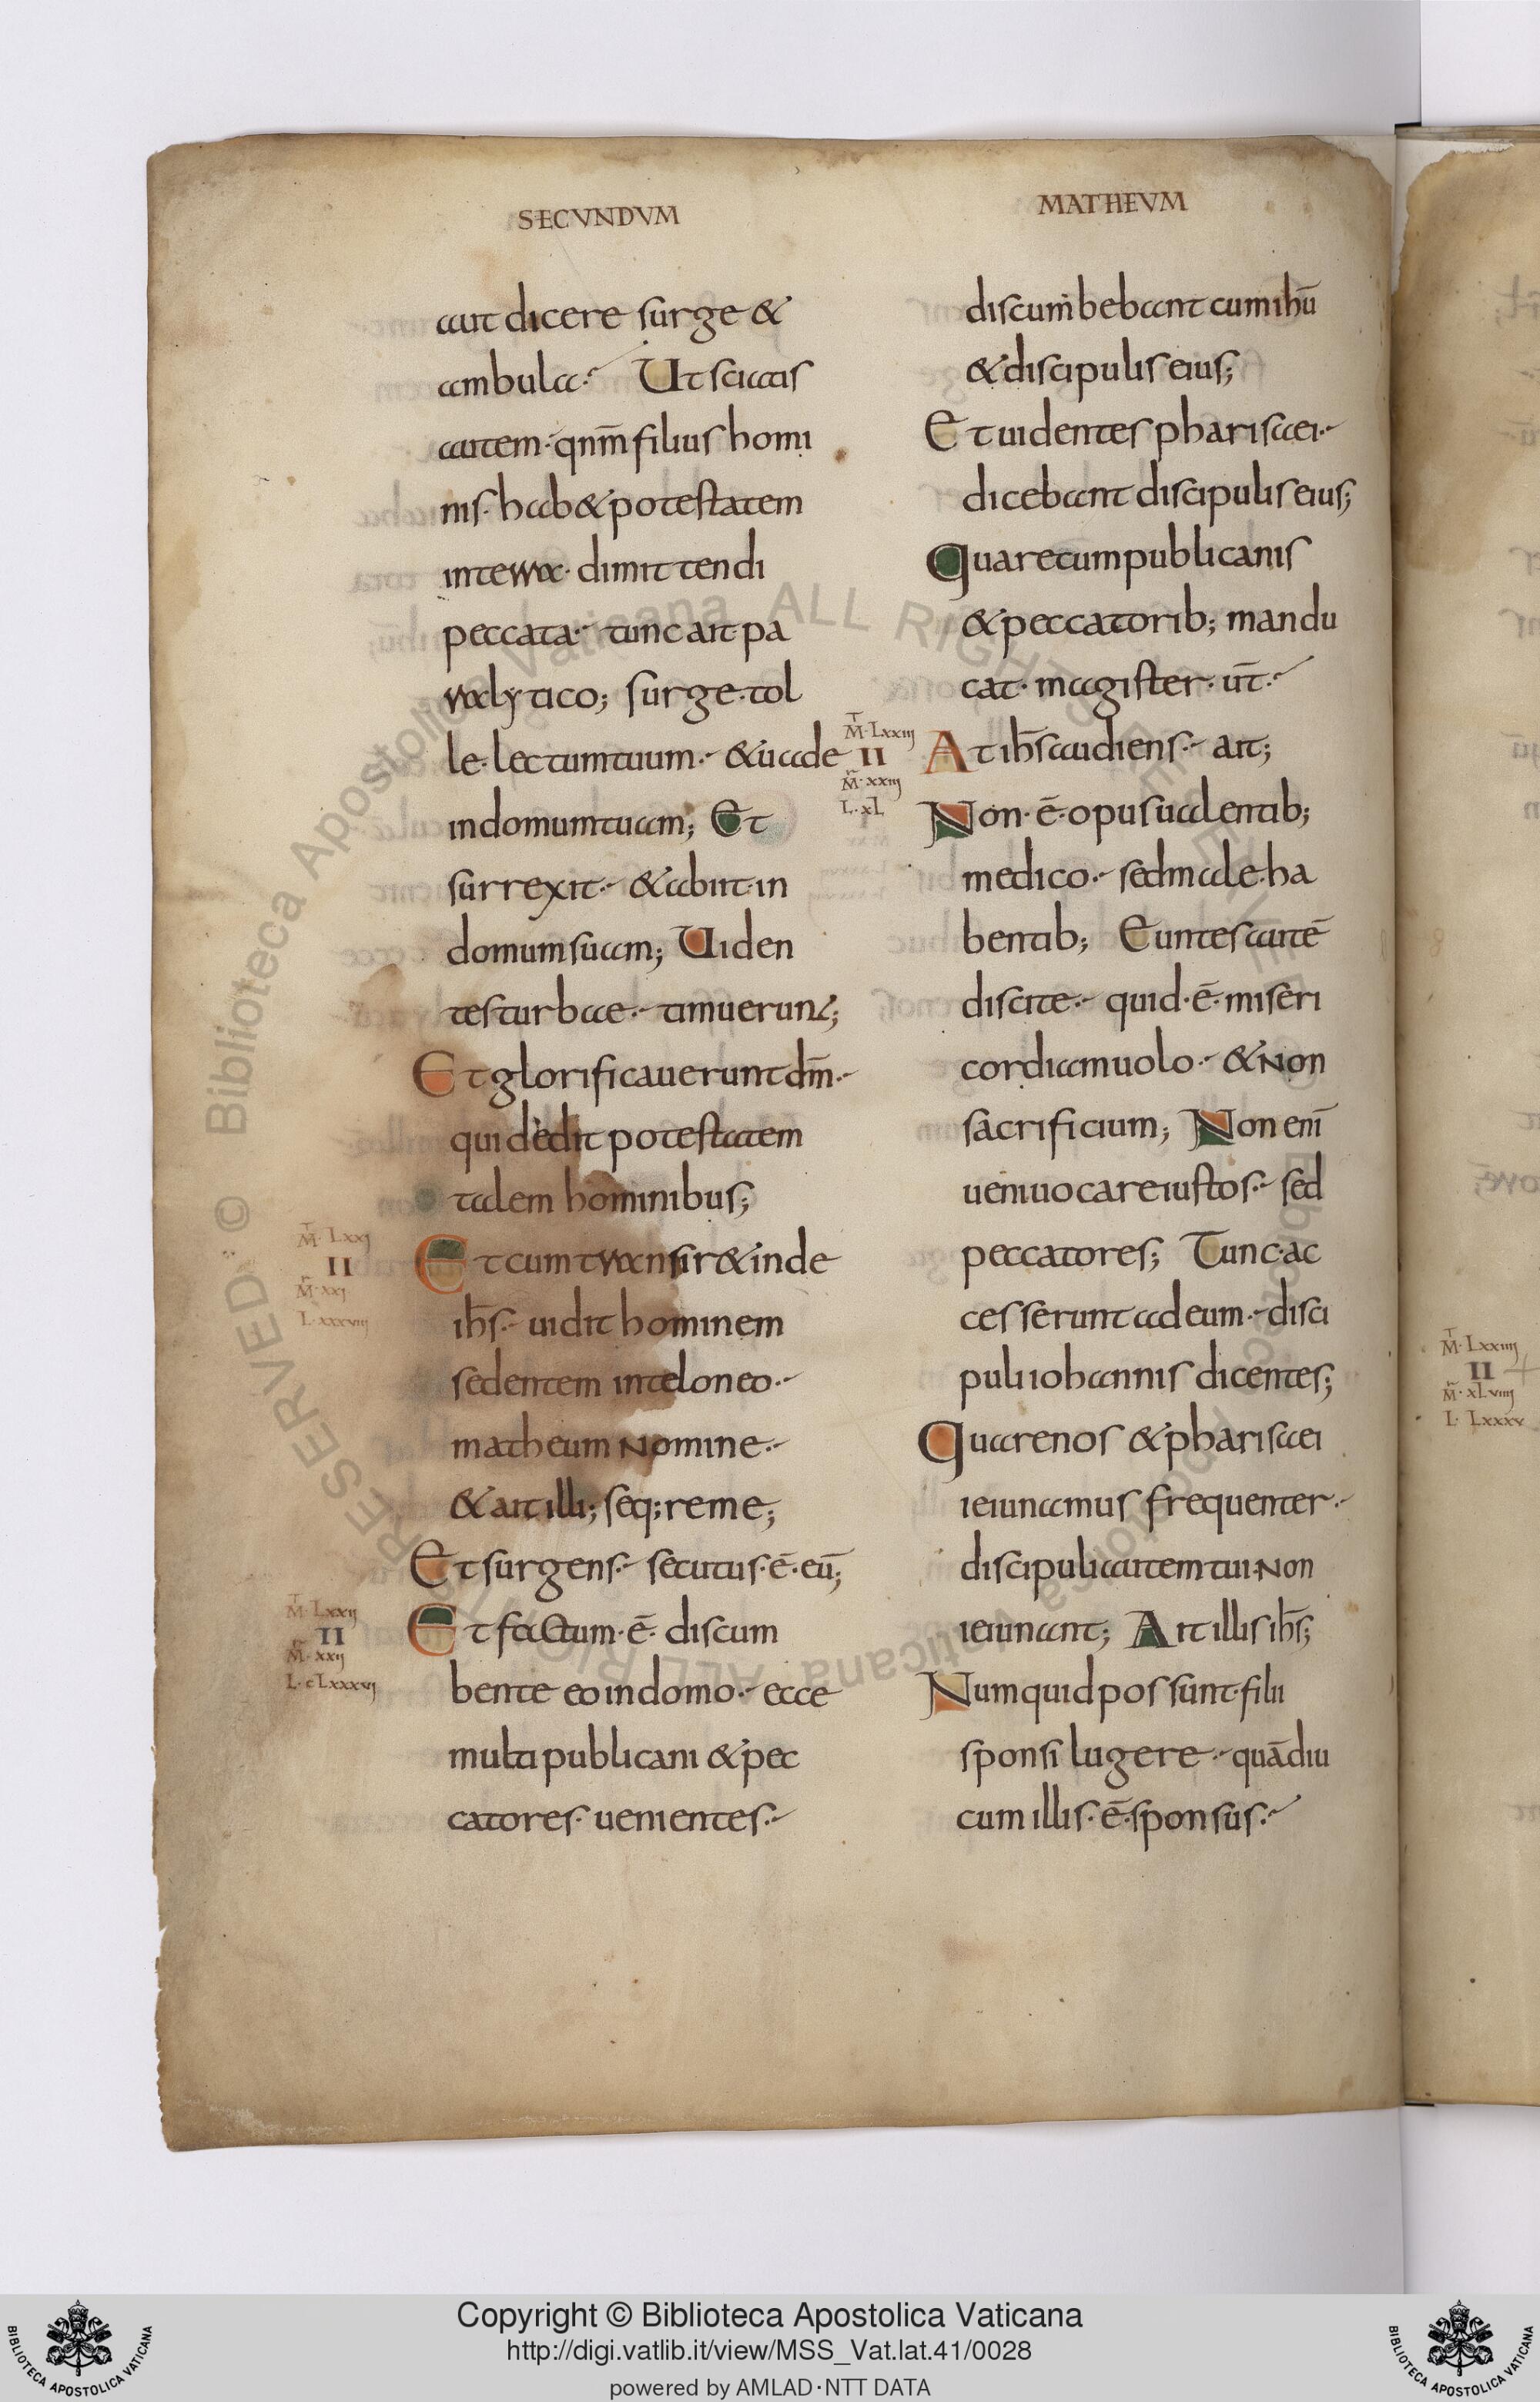 SECVNDVM
aut dicere surge &
ambula·- Ut sciatis
autem· qnm̄ filius homi
nis· hab& potestatem
in terra· dimittendi
peccata·- tunc ait· pa
ralytico; surge· tol
le· lectum tuum·- & uade
in domum tuam; Et
surrexit·- & abiit· in
domum suam; Uiden
tes turbae·- timuerunt;
Et glorificauerunt dm̄·-
qui dedit potestatem
talem hominibus;
T
M· Lxxj
II
M̄· xxj
L· xxxviiij
Et cum transir& inde
ih̄s·- uidit hominem
sedentem in teloneo·-
matheum nomine·-
& ait illi; seq;re me;
Et surgens·- secutus· ē· eū;
T
M· Lxxij
II
M̄· xxij
L· cLxxxvj
Et factum· ē· discum
bente eo in domo·- ecce
multi publicani & pec
catores· uenientes·-
MATHEVM
discumbebant cum ihū
& discipulis eius;
Et uidentes pharisaei·-
dicebant discipulis eius;
Quare cum publicanis
& peccatorib; mandu
cat· magister· ur̄·-
T
M· Lxxiij
II
M̄· xxiij
L· xL
At ih̄s audiens·- ait;
Non· ē· opus ualentib;
medico·- sed male· ha
bentib; Euntes autē
discite·- quid· ē· miseri
cordiam uolo·- & non
sacrificium; Non eni̅
ueni uocare iustos·- sed
peccatores; Tunc· ac
cesserunt ad eum·- disci
puli iohannis dicentes;
Quare nos & pharisaei
ieiunamus frequenter·-
discipuli autem tui· non
ieiunant; Ait illis ih̄s;
Numquid possunt· filii
sponsi lugere·- quādiu
cum illis· ē· sponsus·-
T
M· Lxxiiij
II
M̄· xLviiij
L· Lxxxv
Copyright © Biblioteca Apostolica Vaticana
http://digi.vatlib.it/view/MSS_Vat.lat.41/0028
powered by AMLAD·NTT DATA
BIBLIOTECA APOSTOLICA VATICANA
BIBLIOTECA APOSTOLICA VATICANA